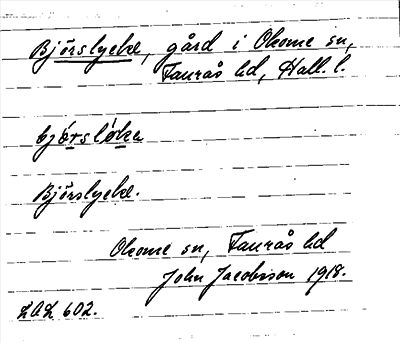 Björslycke, gård i Okome sn,
Faurås hd, Hall. l.
bjórslóka
Björslycke.
Okome sn, Faurås hd
John Jacobsson 1918.
LAL 602.